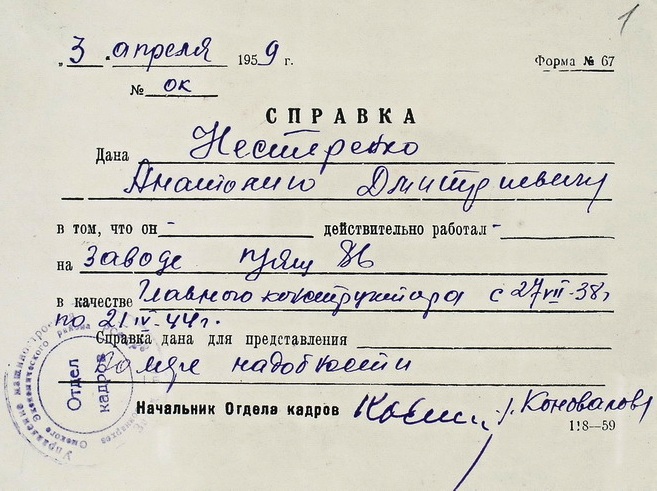 1
„3 . апреля 1959 г.
Форма № 67
№ ок
СПРАВКА
Дана Нестеренко
Анатолию Дмитриевичу
в том, что он - действительно работал -
на заводе п/ящ 86
в качестве Главного конструктора с 27 VII-38г
по 21.IV-44г.
Справка дана для представления
По мере надобности
Начальник Отдела кадров Коновалов
118—59
Отдел
кадров
Управление машиностроения
Омского Экономического района